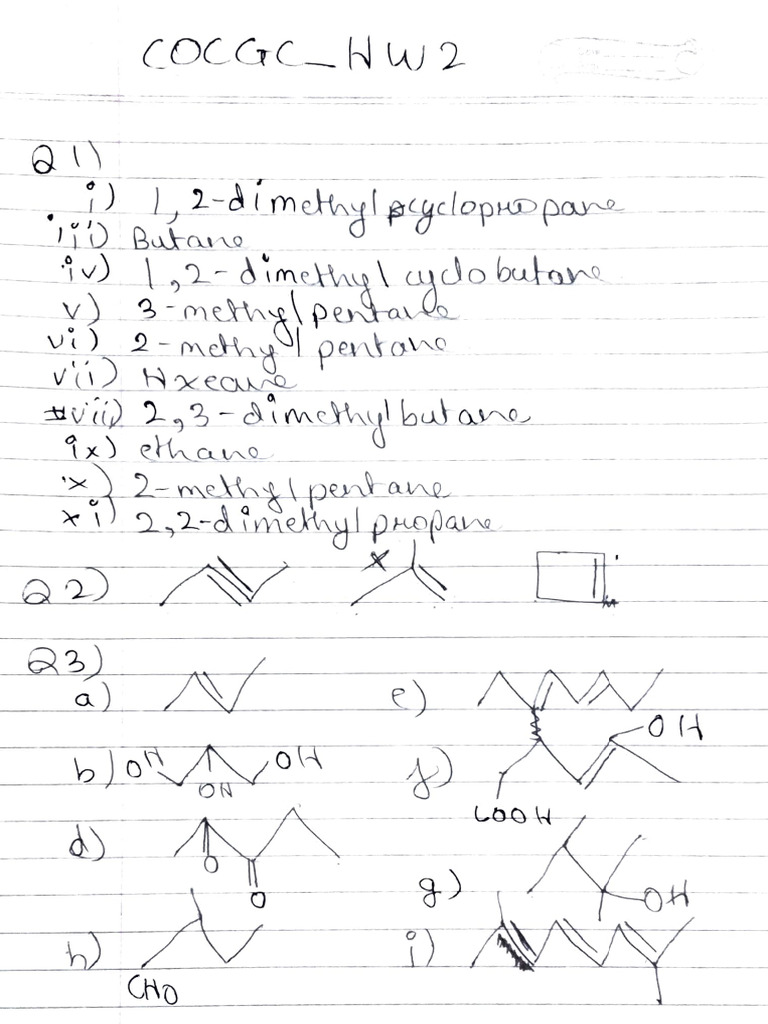 COCGC_HW2
Q1)
i) 1,2-dimethylcyclopropane
iii) Butane
iv) 1,2-dimethylcyclobutane
v) 3-methylpentane
vi) 2-methylpentane
vii) Hxeane
viii) 2,3-dimethylbutane
ix) ethane
x) 2-methylpentane
xi) 2,2-dimethylpropane
Q2)
Q3)
a) e)
b) OH OH OH f) OH
COOH
d) O O g) OH
h) CHO i)